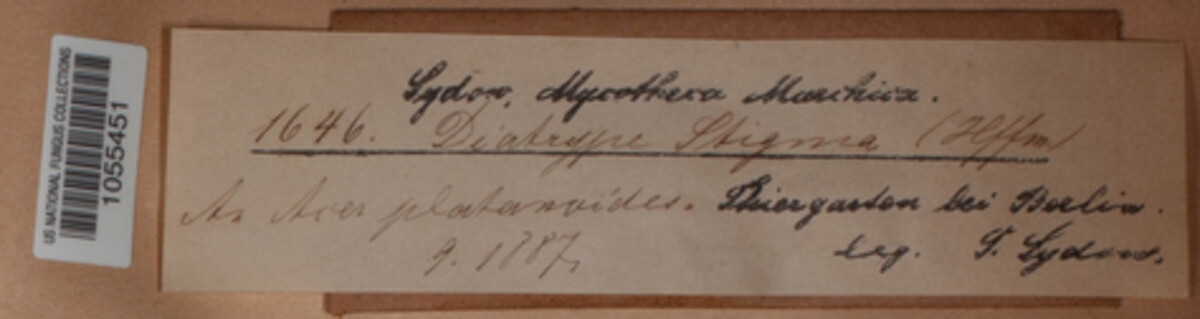 US NATIONAL FUNGUS COLLECTIONS
1055451
Sydow, Mycotheca Marchica.
1646. Diatrype Stigma (Hffm)
An Acer platanoides. Thiergarten bei Berlin.
9. 1887, leg. P. Sydow.